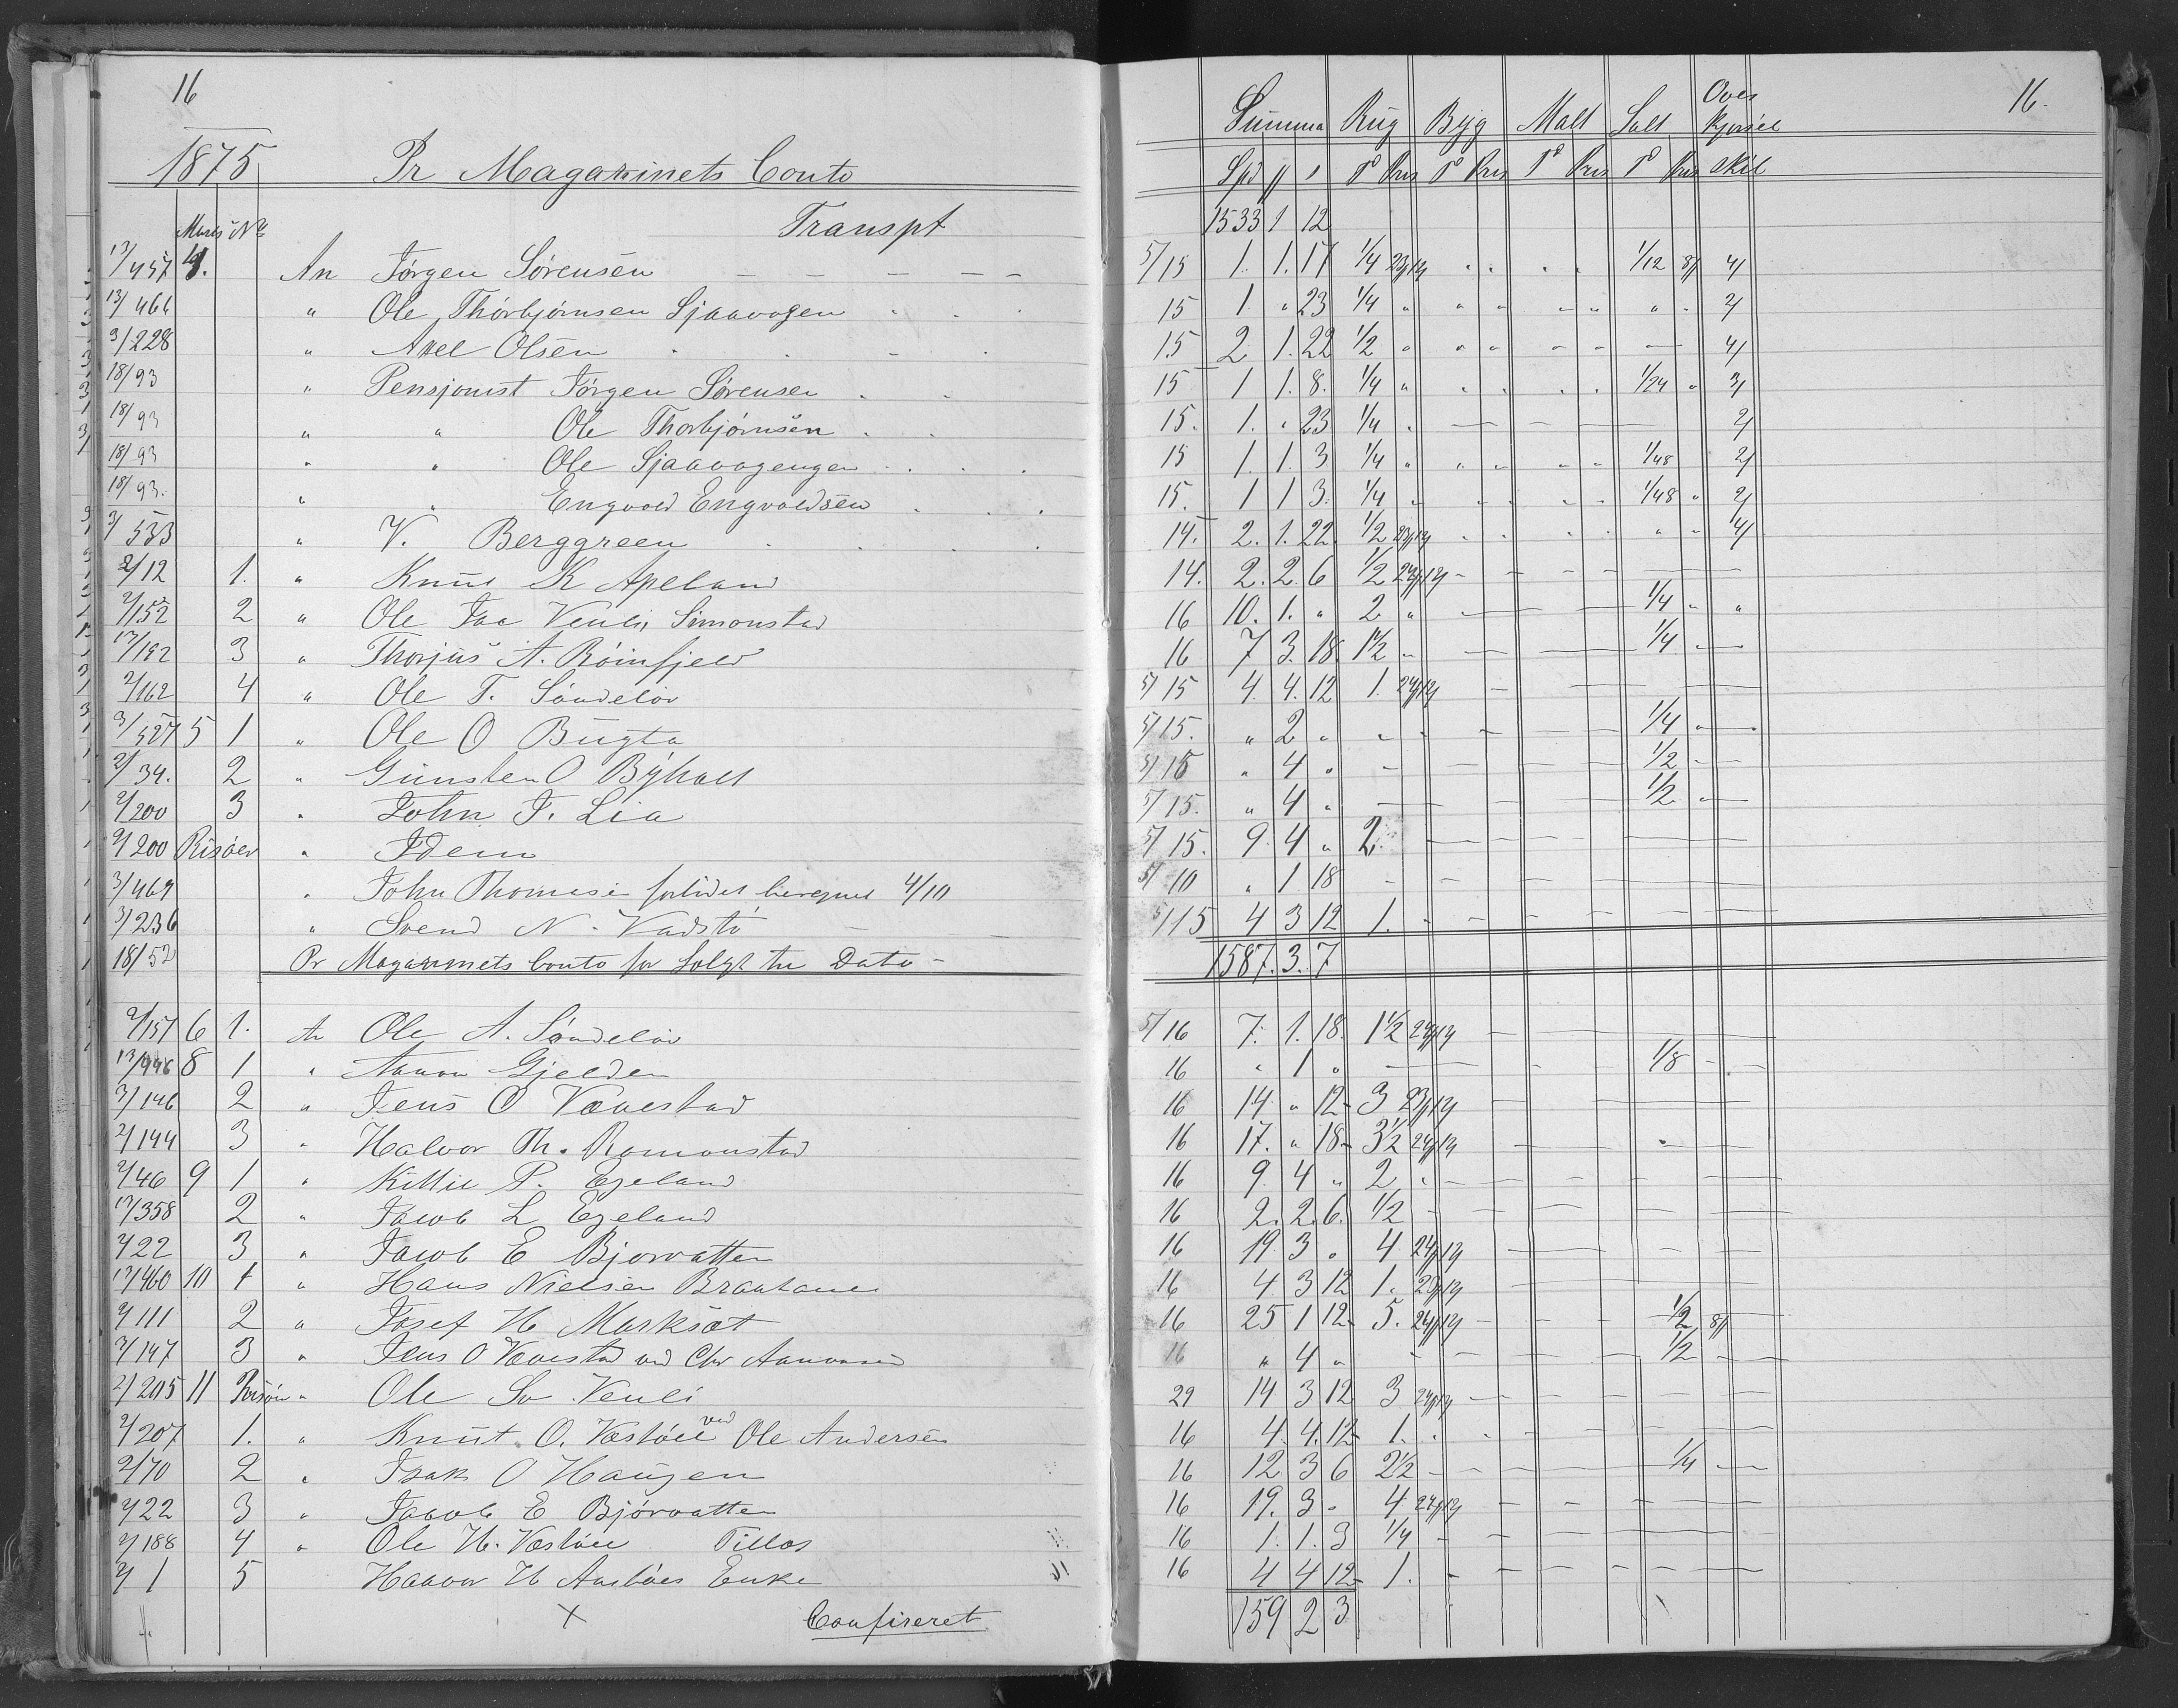 16
1875 Pr Magazinets Conto
Marts No Transpt
13/457 4. An Jørgen Sørensen
13/466 " Ole Thorbjørnsen Sjaavogen
3/228 " Axel Olsen
18/93 " Pensjonist Jørgen Sørensen
18/93 " " Ole Thorbjørnsen
18/93 " " Ole Sjaavogengen
18/93. " " Engvold Engvoldsen
3/533 " V. Berggreen
2/12 1. " Knut K Apeland
2/152 2 " Ole Jaa Venli, Simonstad
17/192 3 " Thorjus A. Røinfjeld
2/162 4 " Ole T. Søndeløv
3/527 5 1 " Ole O Bugta
2/34. 2 " Gunsten O Byholt
2/200 3 " John J. Lia
2/200 Risøer " Idem
3/469 " John Thomese 4/10
3/236 " Svend N. Vadstø
18/52 Pr Magazinets Conto for Solgt til Dato
2/157 6 1. An Ole A. Søndeløv
13/446 8 1 " Aanon Gjelden
3/146 2 " Jens O Vævestad
2/144 3 " Halvor Th. Romonstad
2/46 9 1 " Kittil P. Egeland
17/358 2 " Jacob L Egeland
2/22 3 " Jacob E Bjorvatten
17/460 10 1 " Hans Nielsen
2/111 2 " Josef H Marksæt
3/147 3 " Jens O Vævestad ved Chr Aanonsen
2/205 11 Risøer " Ole Sv. Venli
2/207 1. " Knut O. Vastøel ved Ole Andersen
2/70 2 " Isak O Haugen
2/22 3 " Jacob E Bjørvatten
2/188 4 " Ole H. Vastøel Tillos
2/1 5 Halvor H Enke
x Confireret
16.
Summa Rug Byg Malt Salt Over kjørsel
Spd Td Pris Td Pris Td Pris Td Pris Skil
1533 1 12
5/15 1. 1. 17 1/4 23/12 1/12 8/ 4/
15 1. " 23 1/4 " 2/
15 2 1. 22 1/2 " 4/
15 1 1. 8. 1/4 " 1/24 " 3/
15. 1. " 23 1/4 2/
15 1. 1. 3 1/4 " 1/48 2/
15. 1 1 3. 1/4 " 1/48 " 2/
14. 2. 1. 22 1/2 23/12 4/
14. 2. 2. 6 1/2 24/12
16 10. 1. " 2 " 1/4 " "
16 7 3. 18. 1 1/2 1/4
5/15 4. 4. 12 1. 24/12
5/15. " 2 " 1/4
5/15 " 4 " 1/2
5/15. " 4 " 1/2
5/15. 9. 4 " 2.
5/10 " 1 18
5/15 4 3 12 1.
1587. 3. 7
5/16 7. 1. 18. 1 1/2 24/12
16 " 1 " 1/8
16 14 " 12 3 23/12
16 17. " 18 3 1/2 24/12
16 9. 4 " 2 "
16 2. 2. 6. 1/2
16 19. 3 " 4 24/12
16 4. 3 12 1. 23/12
16 25 1 12 5. 24/12 1/2 8/
16 " 4 " 1/2
29 14 3 12 3 24/12
16 4. 4. 12 1.
16 12 3 6 2 1/2 1/4
16 19. 3 " 4 24/12
16 1. 1. 3 1/4
16 4 4 12 1.
159 2 3